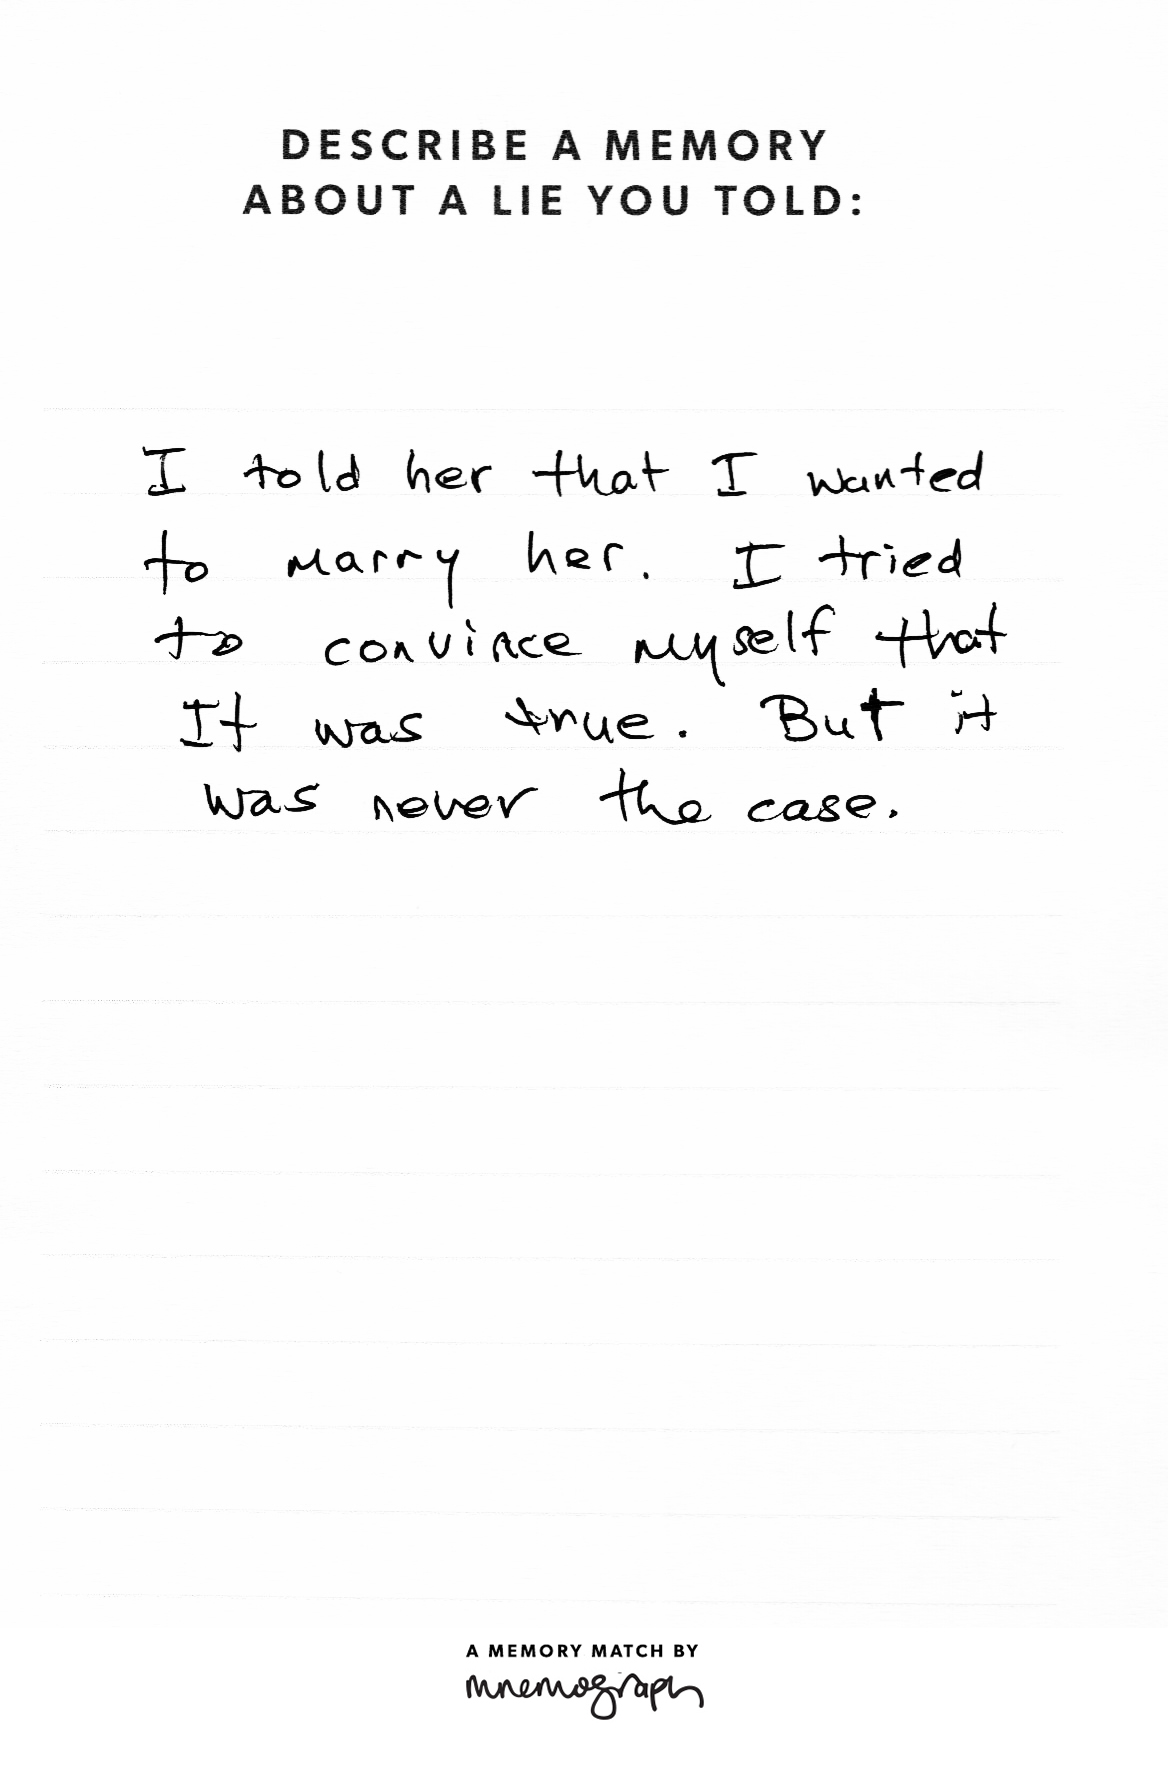 DESCRIBE A MEMORY
ABOUT A LIE YOU TOLD:
I told her that I wanted
to marry her. I tried
to convince myself that
It was true. But it
was never the case.
A MEMORY MATCH BY
mnemograph